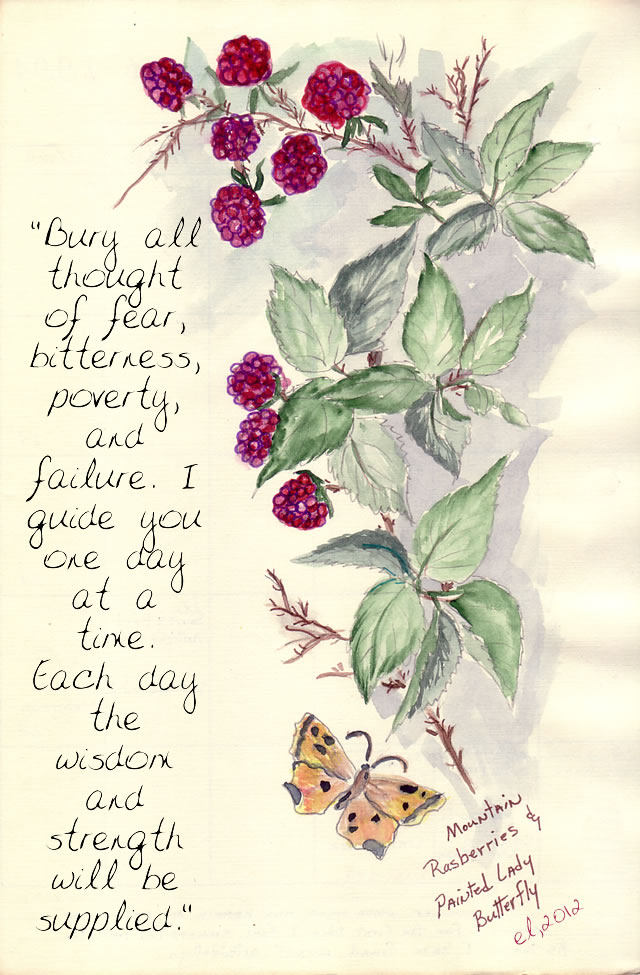 "Bury all
thought
of fear,
bitterness,
poverty,
and
failure. I
guide you
one day
at a
time.
Each day
the
wisdom
and
strength
will be
supplied."
Mountain
Rasberries &
Painted Lady
Butterfly
el, 2012